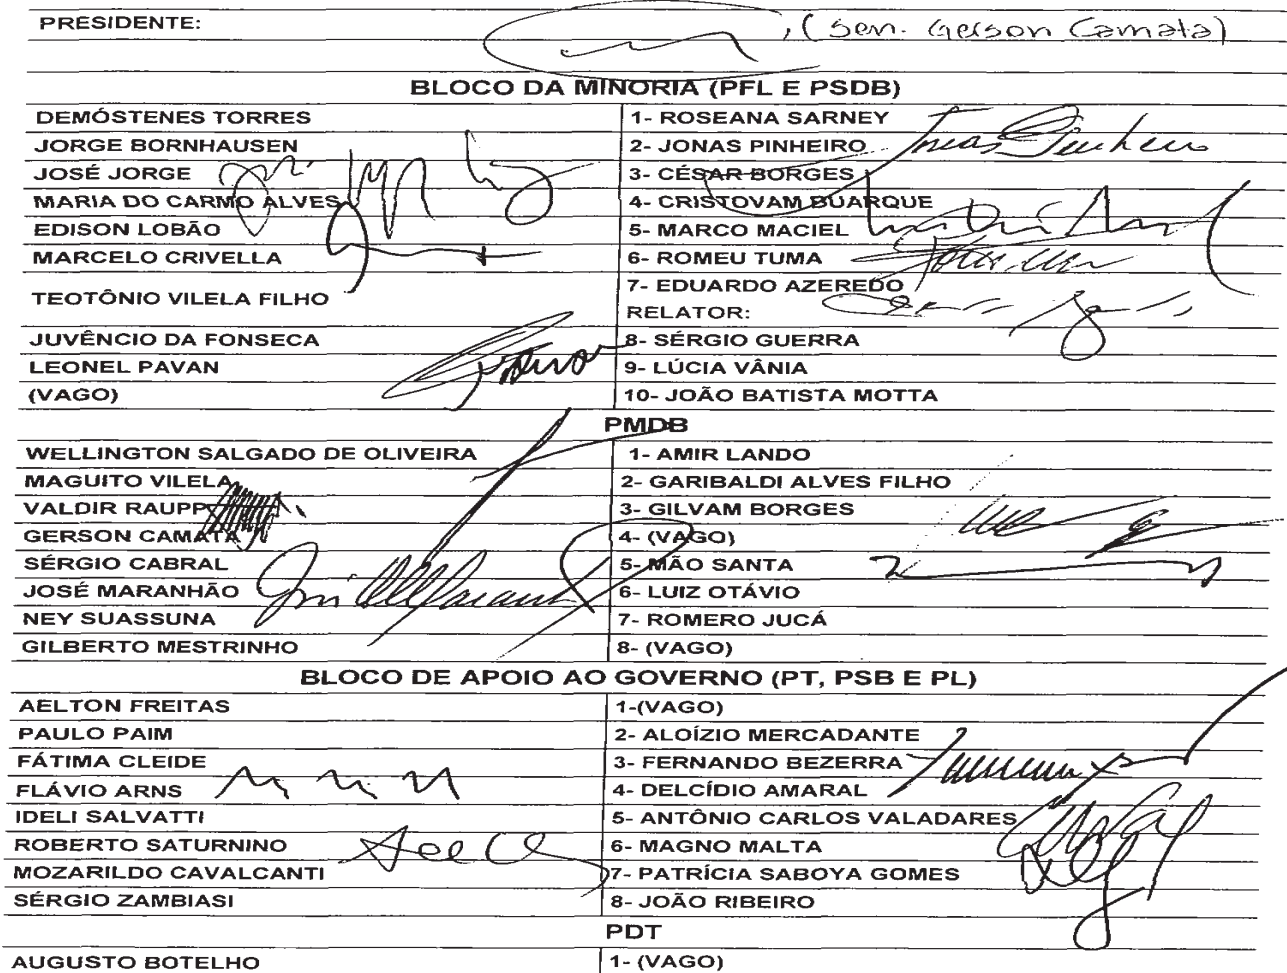 PRESIDENTE: , (Sen. Gerson Camata)
BLOCO DA MINORIA (PFL E PSDB)
DEMÓSTENES TORRES 1- ROSEANA SARNEY
JORGE BORNHAUSEN 2- JONAS PINHEIRO Jonas Pinheiro
JOSÉ JORGE 3- CÉSAR BORGES
MARIA DO CARMO ALVES 4- CRISTOVAM BUARQUE
EDISON LOBÃO 5- MARCO MACIEL
MARCELO CRIVELLA 6- ROMEU TUMA
TEOTÔNIO VILELA FILHO 7- EDUARDO AZEREDO
RELATOR:
JUVÊNCIO DA FONSECA 8- SÉRGIO GUERRA
LEONEL PAVAN 9- LÚCIA VÂNIA
(VAGO) 10- JOÃO BATISTA MOTTA
PMDB
WELLINGTON SALGADO DE OLIVEIRA 1- AMIR LANDO
MAGUITO VILELA 2- GARIBALDI ALVES FILHO
VALDIR RAUPP 3- GILVAM BORGES
GERSON CAMATA 4- (VAGO)
SÉRGIO CABRAL 5- MÃO SANTA
JOSÉ MARANHÃO 6- LUIZ OTÁVIO
NEY SUASSUNA 7- ROMERO JUCÁ
GILBERTO MESTRINHO 8- (VAGO)
BLOCO DE APOIO AO GOVERNO (PT, PSB E PL)
AELTON FREITAS 1-(VAGO)
PAULO PAIM 2- ALOÍZIO MERCADANTE
FÁTIMA CLEIDE 3- FERNANDO BEZERRA
FLÁVIO ARNS 4- DELCÍDIO AMARAL
IDELI SALVATTI 5- ANTÔNIO CARLOS VALADARES
ROBERTO SATURNINO 6- MAGNO MALTA
MOZARILDO CAVALCANTI 7- PATRÍCIA SABOYA GOMES
SÉRGIO ZAMBIASI 8- JOÃO RIBEIRO
PDT
AUGUSTO BOTELHO 1- (VAGO)